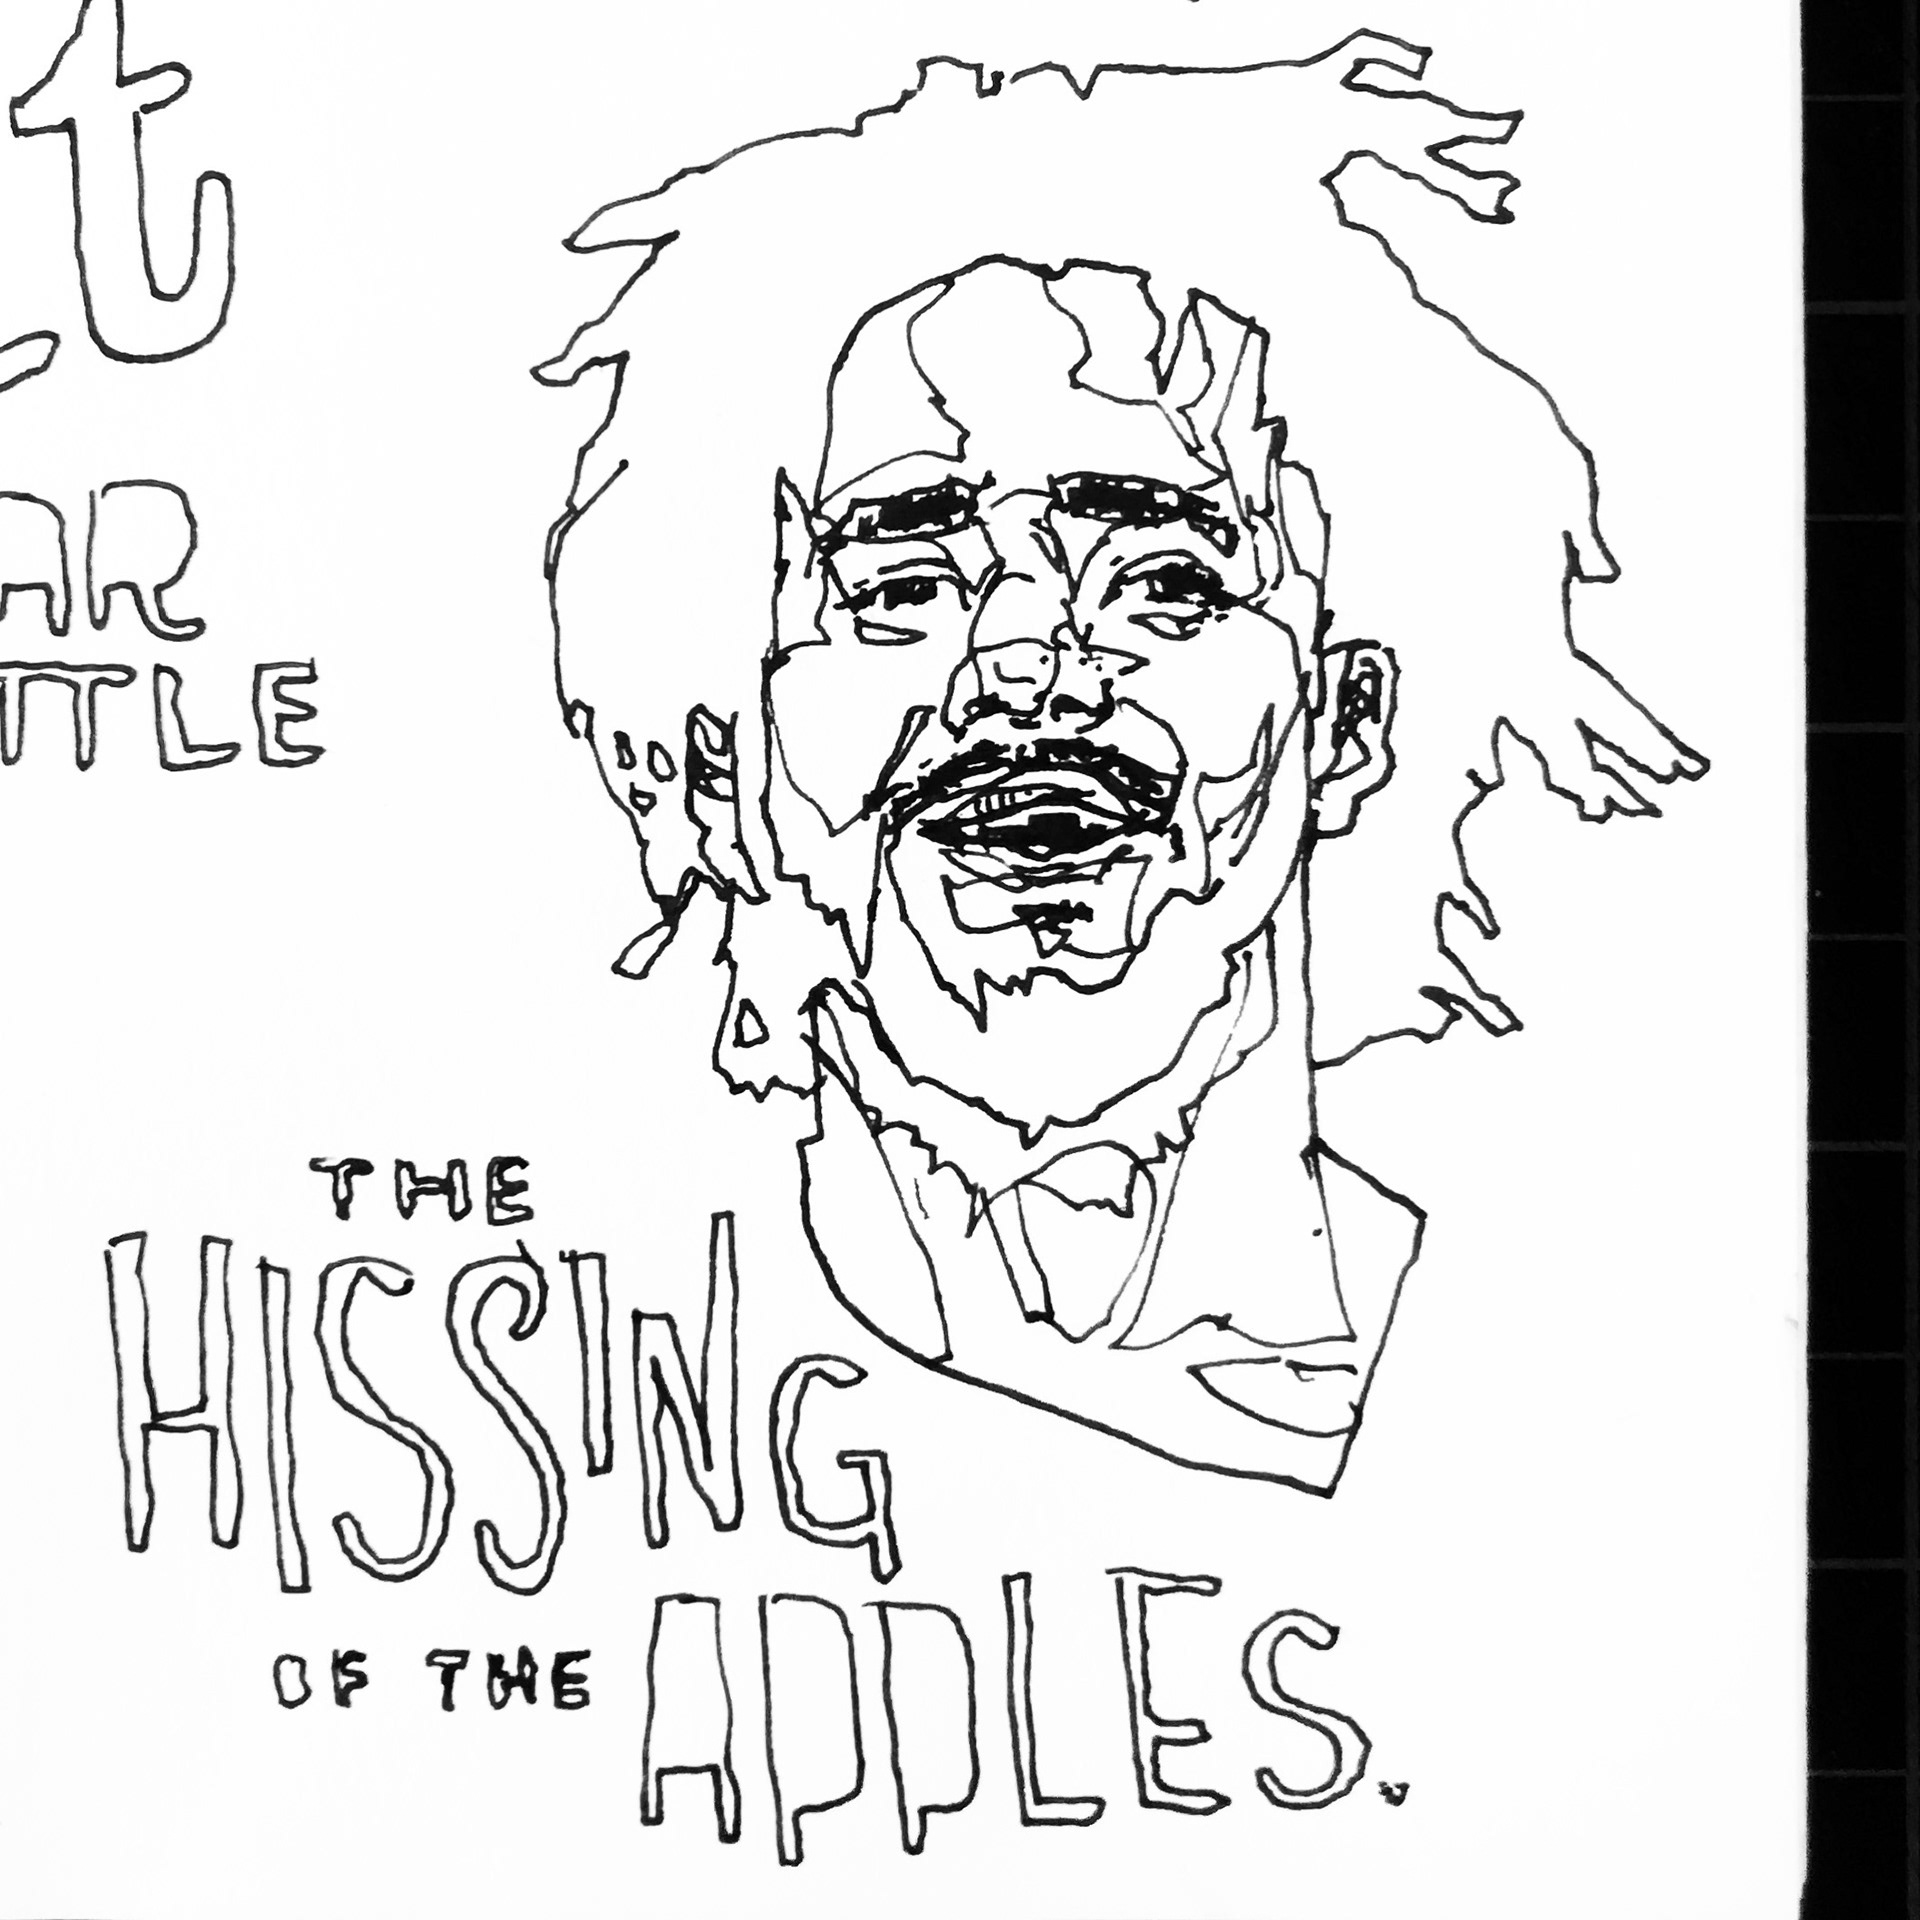 t
AR
TTLE
THE
HISSING
OF THE
APPLES.